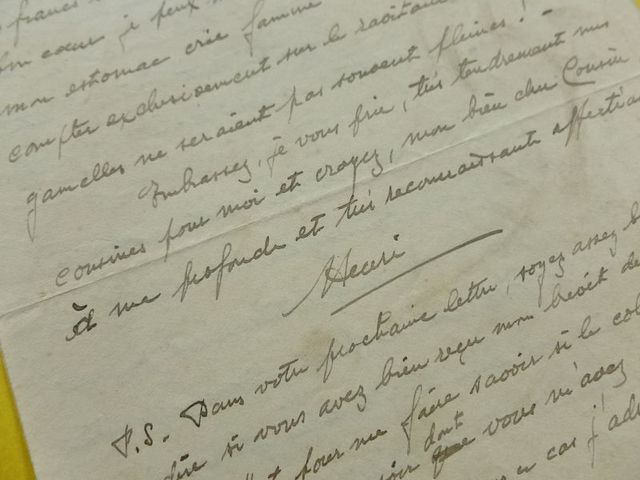 francs
bon cœur, je peux
mon estomac crie famine
compter exclusivement sur le ravitail
gamelles ne seraient pas souvent pleines ! -
Embrassez, je vous prie, très tendrement mes
cousines pour moi et croyez, mon bien cher Cousin
à ma profonde et très reconnaissante affection
Henri
P.S. Dans votre prochaine lettre, soyez assez b
dire si vous avez bien reçu mon
pour me faire savoir si le col
dont vous m'avez
cas j'ad